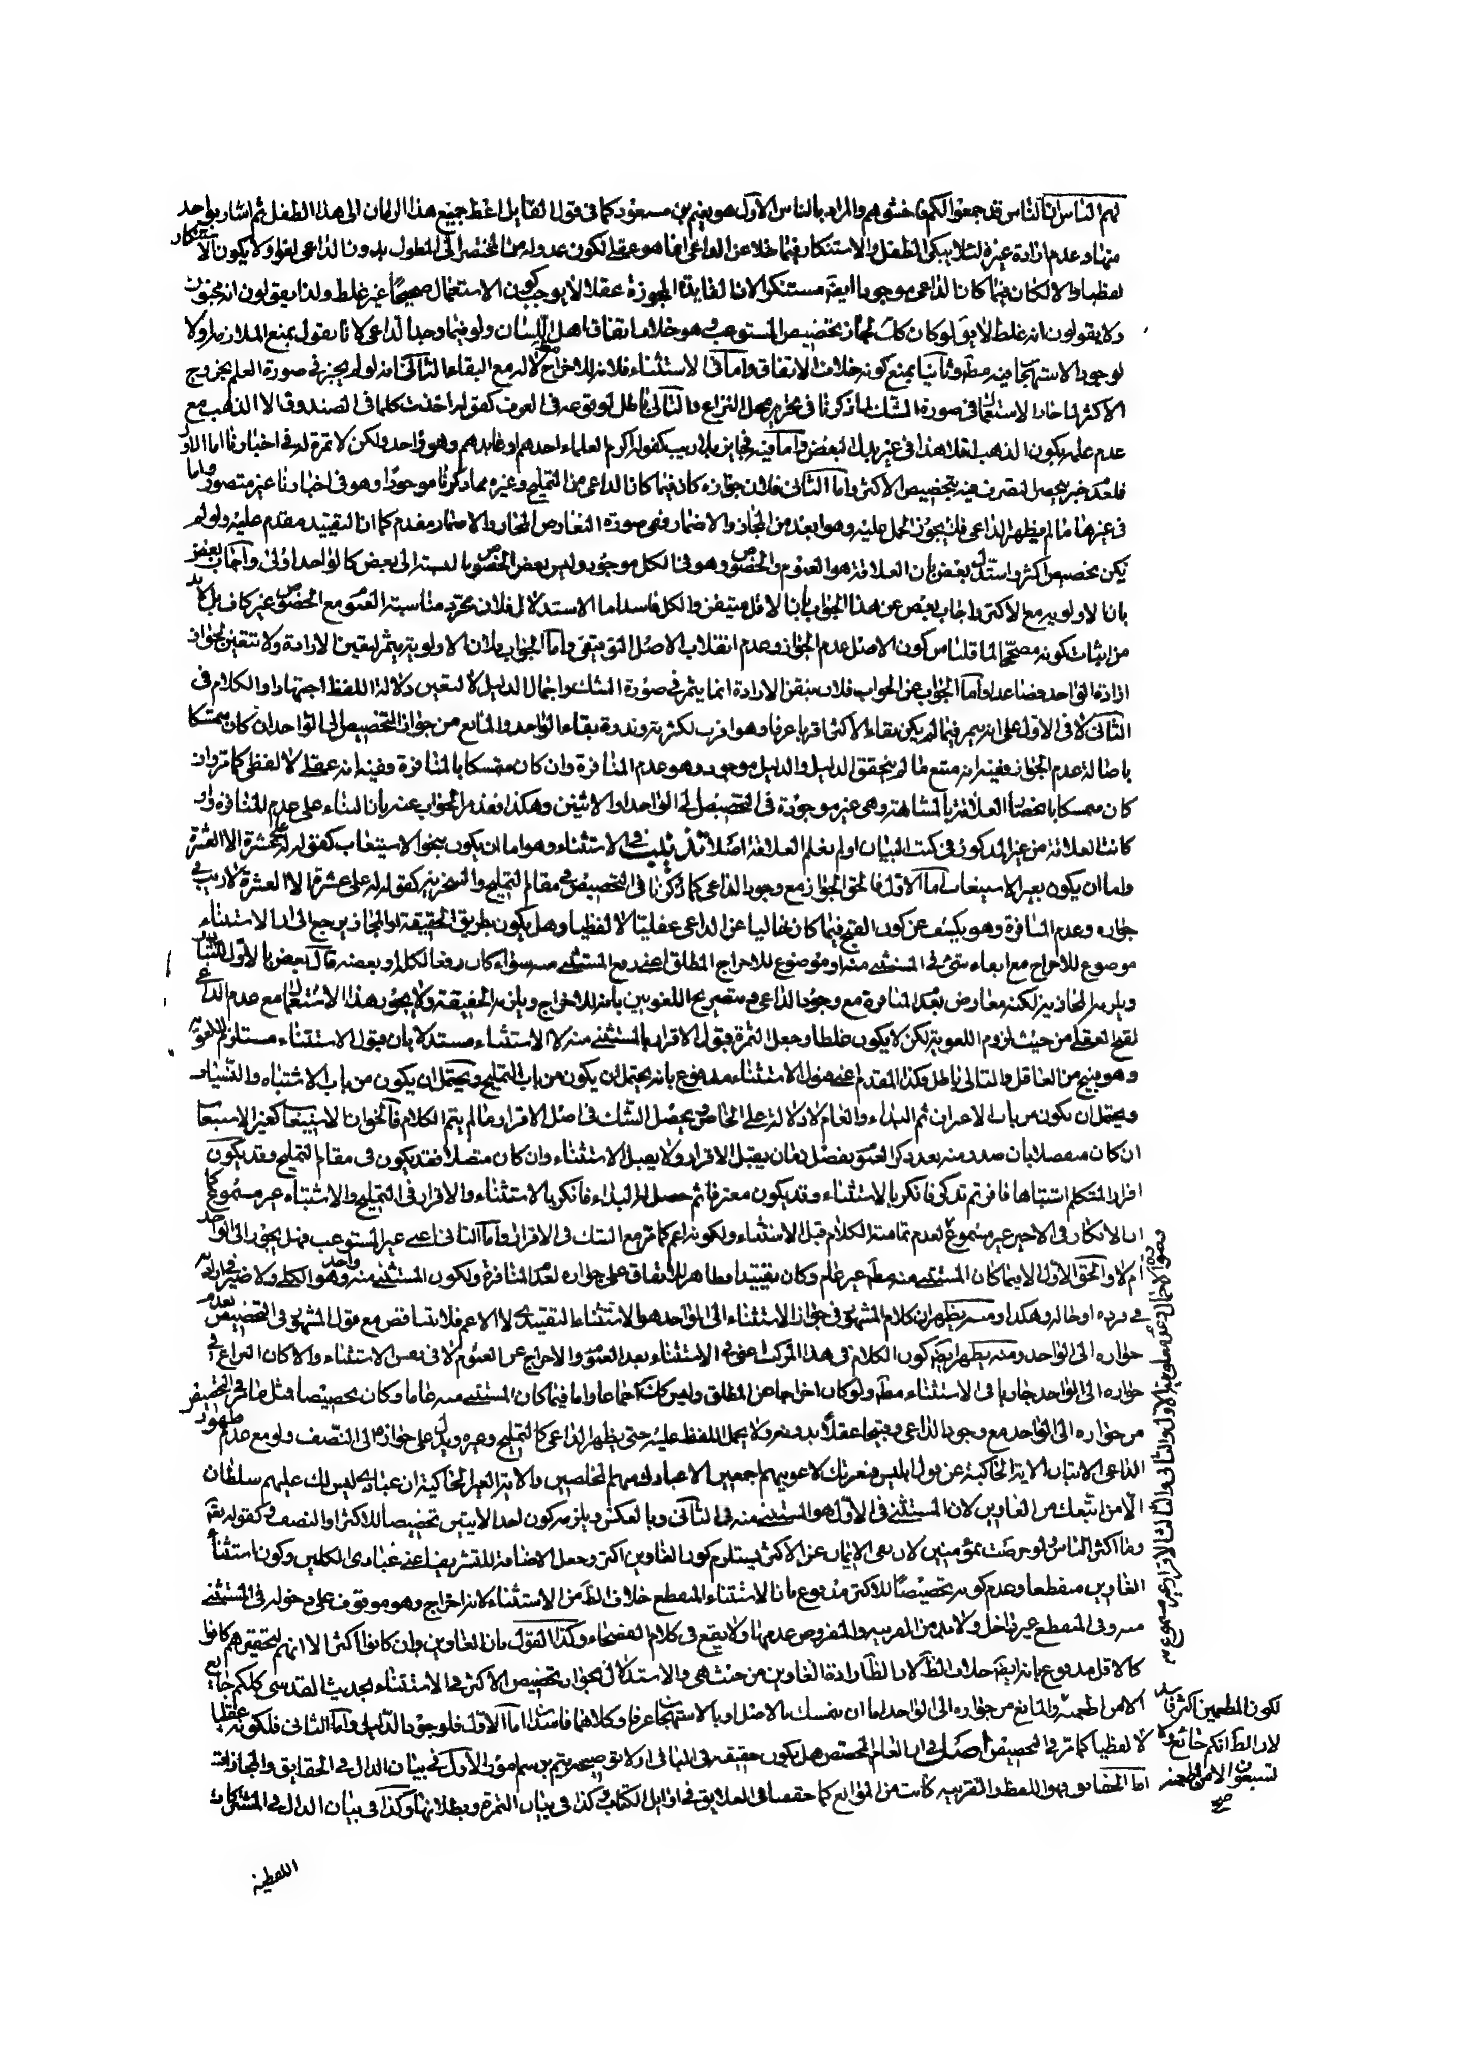 لهم الناس ان الناس قد جمعوا لكم فاخشوهم والمراد بالناس الاول هو نعيم بن مسعود كما فى قول القايل اغط جميع هذا الرمان الى هذا الطفل ثم اشار بواحد
منها وعدم ارادة غيره لئلا يبكى الطفل والاستنكار فيما خلا عن الداعى انما هو عقلى لكون عدوله من المختصر الى المطول بدون الداعى لغوا ولا يكون الاستنكار
لفظيا والا لكان فيما كان الداعى موجودا ايضا مستنكرا لان الفايدة المجوزة عقلا لا يوجب كون الاستعمال صحيحا غير غلط ولذا يقولون انه مجنون
ولا يقولون انه غلط لا يق لو كان كك لجاز تخصيص المستوعب وهو خلاف اتفاق اهل اللسان ولو فيما وجد الداعى لانا نقول بمنع الملازمة اولا
لوجود الاستهجان فيه مطه وثانيا بمنع كونه خلاف الاتفاق واما فى الاستثناء فلانه للاخراج مطه لا له مع البقاء الثانى انه لو لم يجز فى صورة العلم بخروج
الاكثر لما جاز الاستعمال فى صورة الشك لما ذكرنا فى تحرير محل النزاع والتالى باطل لوقوعه فى العرف كقوله اخذت كلما فى الصندوق الا الذهب مع
عدم علمه بكون الذهب اقل هذا فى غير بدلية البعض واما فيه فجايز بلا ريب كقوله اكرم العلماء احدهم او غايدهم وهو واحد ولكن لا ثمرة له فى اخبارنا اما الاول
فلعدم خبر يحصل التصرف فيه بتخصيص الاكثر واما الثانى فلان جوازه كان فيما كان الداعى من التمليح وغيره مما ذكرنا موجودا وهو فى اخبارنا غير متصور واما
فى غيرها ما لم يظهر الداعى فلا يجوز الحمل عليه وهو ابعد من المجاز والاضمار وفى صورة التعارض المجاز والاضمار مقدم كما ان التقييد مقدم عليه ولو لم
يكن تخصيص اكثر واستدل بعض بان العلاقة هو العموم والخصوص وهو فى الكل موجود وليس بعض الخصوص بالنسبة الى بعض كالواحد اولى واجاب بعض
بان الاولوية مع الاكثر واجاب بعض عن هذا الجواب بان الاقل متيقن والكل فاسد اما الاستدلال فلان مجرد مناسبة العموم مع الخصوص غير كاف بل لا بد
من اثبات كونه مصححا لما قلنا من كون الاصل عدم الجواز وعدم انقلاب الاصل التوقيفى واما الجواب فلان الاولوية يثمر لتعيين الارادة ولا تتعين لجواز
ارادة الواحد فصاعدا واما الجواب عن الجواب فلان تيقن الارادة انما يثمر فى صورة الشك واجمال الدليل لا لتعيين دلالة اللفظ اجتهادا والكلام فى
الثانى لا فى الاول على انه يتم فيما لم يكن بقاء الاكثر اقربا عرفا وهو اقرب لكثرته وندرة بقاء الواحد والمانع من جواز التخصيص الى الواحد ان كان متمسكا
باصالة عدم الجواز ففيه انه متبع ما لم يتحقق الدليل والدليل موجود وهو عدم المنافرة وان كان متمسكا بالمنافرة ففيه انه عقلى لا لفظى كما مر وان
كان متمسكا بانحصار العلاقة بالمشابهة وهى غير موجودة فى التخصيص الى الواحد او الاثنين وهكذا فقد مر الجواب عنه بان البناء على عدم المنافرة ولو
كانت العلاقة من غير المذكور فى كتب البيان او لم يعلم العلاقة اصلا تذنيب فى الاستثناء وهو اما ان يكون بنحو الاستيعاب كقوله له على عشرة الا العشرة
واما ان يكون بغير الاستيعاب اما الاول فالحق الجواز مع وجود الداعى كما ذكرنا فى التخصيص فى مقام التمليح والسخرية كقوله له على عشرة الا العشرة لا ريب فى
جوازه وعدم المنافرة وهو يكشف عن كون القبح فيما كان خاليا عن الداعى عقليا لا لفظيا وهل يكون بطريق الحقيقة او المجاز يرجع الى ان الاستثناء
موضوع للاخراج مع ابقاء شىء فى المستثنى منه او موضوع للاخراج المطلق اعنى رفع المستثنى منه سواء كان رفعا لكله او بعضه قال بعض بالاول للتبادر
ويلزمه المجازية لكنه معارض بعدم المنافرة مع وجود الداعى وبتصريح اللغويين بانه للاخراج ويلزمه الحقيقة ولا يجوز هذا الاستعمال مع عدم الداعى
لقبح العقلى من حيث لزوم اللغوية لكن لا يكون غلطا وجعل الثمرة قبول الاقرار بالمستثنى منه لا الاستثناء مستدلا بان قبول الاستثناء مستلزم للغوية
وهو قبيح من العاقل والتالى باطل وكذا المقدم اعنى قبول الاستثناء مدفوع بانه يحتمل ان يكون من باب التمليح ويحتمل ان يكون من باب الاشتباه والنسيان
ويحتمل ان يكون من باب الاعراب ثم البداء والعام لا دلالة له على الخاص ويحصل الشك فى اصل الاقرار وما لم يتم الكلام فالخوان لا ستيعابا كغير الاستيعاب
ان كان منفصلا بان صدر منه بعد ذكر العموم بفصل زمان يقبل الاقرار ولا يقبل الاستثناء وان كان متصلا فقد يكون فى مقام التمليح وقد يكون
اقرار المتكلم اشتباها فاقر ثم تذكر فانكر بالاستثناء وقد يكون معترفا ثم حصل له البداء فانكر بالاستثناء والاقرار فى التمليح والاشتباه غير مسموع كما
ان الانكار فى الاخير غير مسموع لعدم تمامية الكلام قبل الاستثناء ولكونه اعم كما مر مع الشك فى الاقرار واما الثانى اعنى غير المستوعب فهل يجوز الى الواحد
ام لا والحق الاول لا فيما كان المستثنى منه مطه غير عام وكان تقييدا فظاهر للاتفاق على جوازه لعدم المنافرة ولكون المستثنى منه واحد وهو الكلى ولا ضير فى ارادته
فى فرده او حاله وهكذا ومنه يظهر ان كلام المشهور فى جواز الاستثناء الى الواحد هو الاستثناء التقييدى لا الاعم فلا تناقض مع قول المشهور فى التخصيص بعدم
جوازه الى الواحد ومنه يظهر ايضا كون الكلام فى هذا المركب اعنى الاستثناء بعد العموم والاخراج عن العموم لا فى نفس الاستثناء والا كان النزاع فى
جوازه الى الواحد جاريا فى الاستثناء مطه ولو كان اخراجا عن المطلق وليس كك اجماعا واما فيما كان المستثنى منه عاما وكان تخصيصا فمثل ما فى التخصيص
من جوازه الى الواحد مع وجود الداعى وقبحا عقلا بدونه ولا يحمل اللفظ عليه حتى يظهر الداعى كالتمليح وغيره ويدل على جوازه الى النصف ولو مع عدم ظهور
الداعى الاتيان الاية الحاكية عن قول ابليس فبعزتك لاغوينهم اجمعين الا عبادك منهم المخلصين والاية الغير الحاكية ان عبادى ليس لك عليهم سلطان
الا من اتبعك من الغاوين لان المستثنى فى الاول هو المستثنى منه فى الثانى وبالعكس ويلزمه كون احد الايتين تخصيصا للاكثر او النصف وكقوله تعه
وما اكثر الناس لو حرصت بمؤمنين لان نفى الايمان عن الاكثر يستلزم كون الغاوين اكثر وجعل الاضافة للتشريف اعنى عبادى الكاملين وكون استثناء
الغاوين منقطعا وعدم كونه تخصيصا للاكثر مدفوع بان الاستثناء المنقطع خلاف الظه من الاستثناء لانه اخراج وهو موقوف على دخوله فى المستثنى
منه وفى المنقطع غير داخل ولا بد من القرينة والمفروض عدمها ولا يقع فى كلام الفصحاء وكذا القول بان الغاوين وان كانوا اكثر الا انهم لتحقيرهم كانوا
كالاقل مدفوع بانه ايضا خلاف الظه لان الظه ارادة الغاوين من حيث هى والاستدلال بجواز تخصيص الاكثر فى الاستثناء بحديث القدسى كلكم جايع
الا من اطعمته والمانع من جوازه الى الواحد اما ان يتمسك بالاصل او بالاستهجان عرفا وكلاهما فاسدان اما الاول فلوجود الدليل واما الثانى فلكونه عقليا
لا لفظيا كما مر فى التخصيص اصل فى ان العام المخصص هل يكون حقيقة فى الباقى او لا توضيحه يتم برسم امور الاول فى بيان الدال فى الحقايق والمجازات
اما الحقايق فهو اللفظ والقرينة كانت من الموانع كما حققنا فى العلايق فى اوايل الكتاب كذا فى بيان الثمرة وبطلانها وكذا فى بيان الدال فى المشتركات
اللفظية
لكون المطعمين اكثر فاسد
لان الظه انكم جائع ولا
تشبعون الا من اطعمته